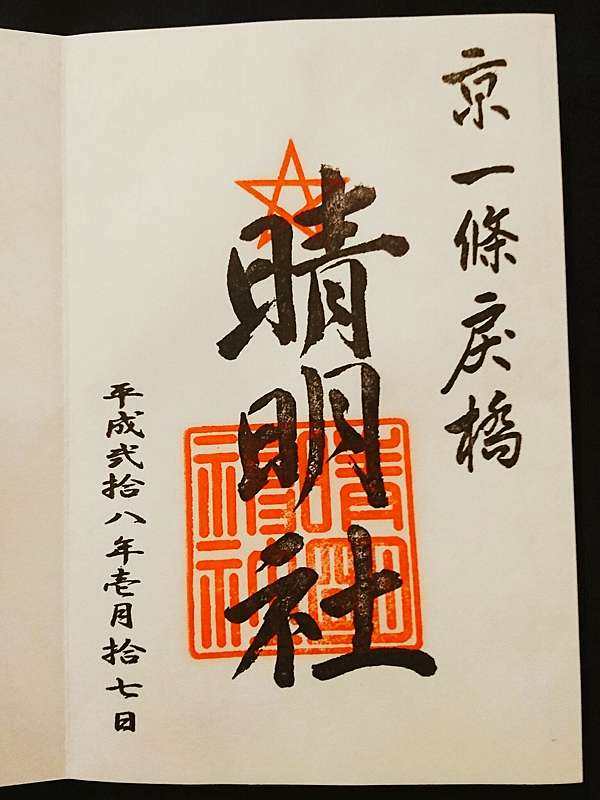 京一條戻橋
晴明社
晴明神社
平成弐拾八年壱月拾七日